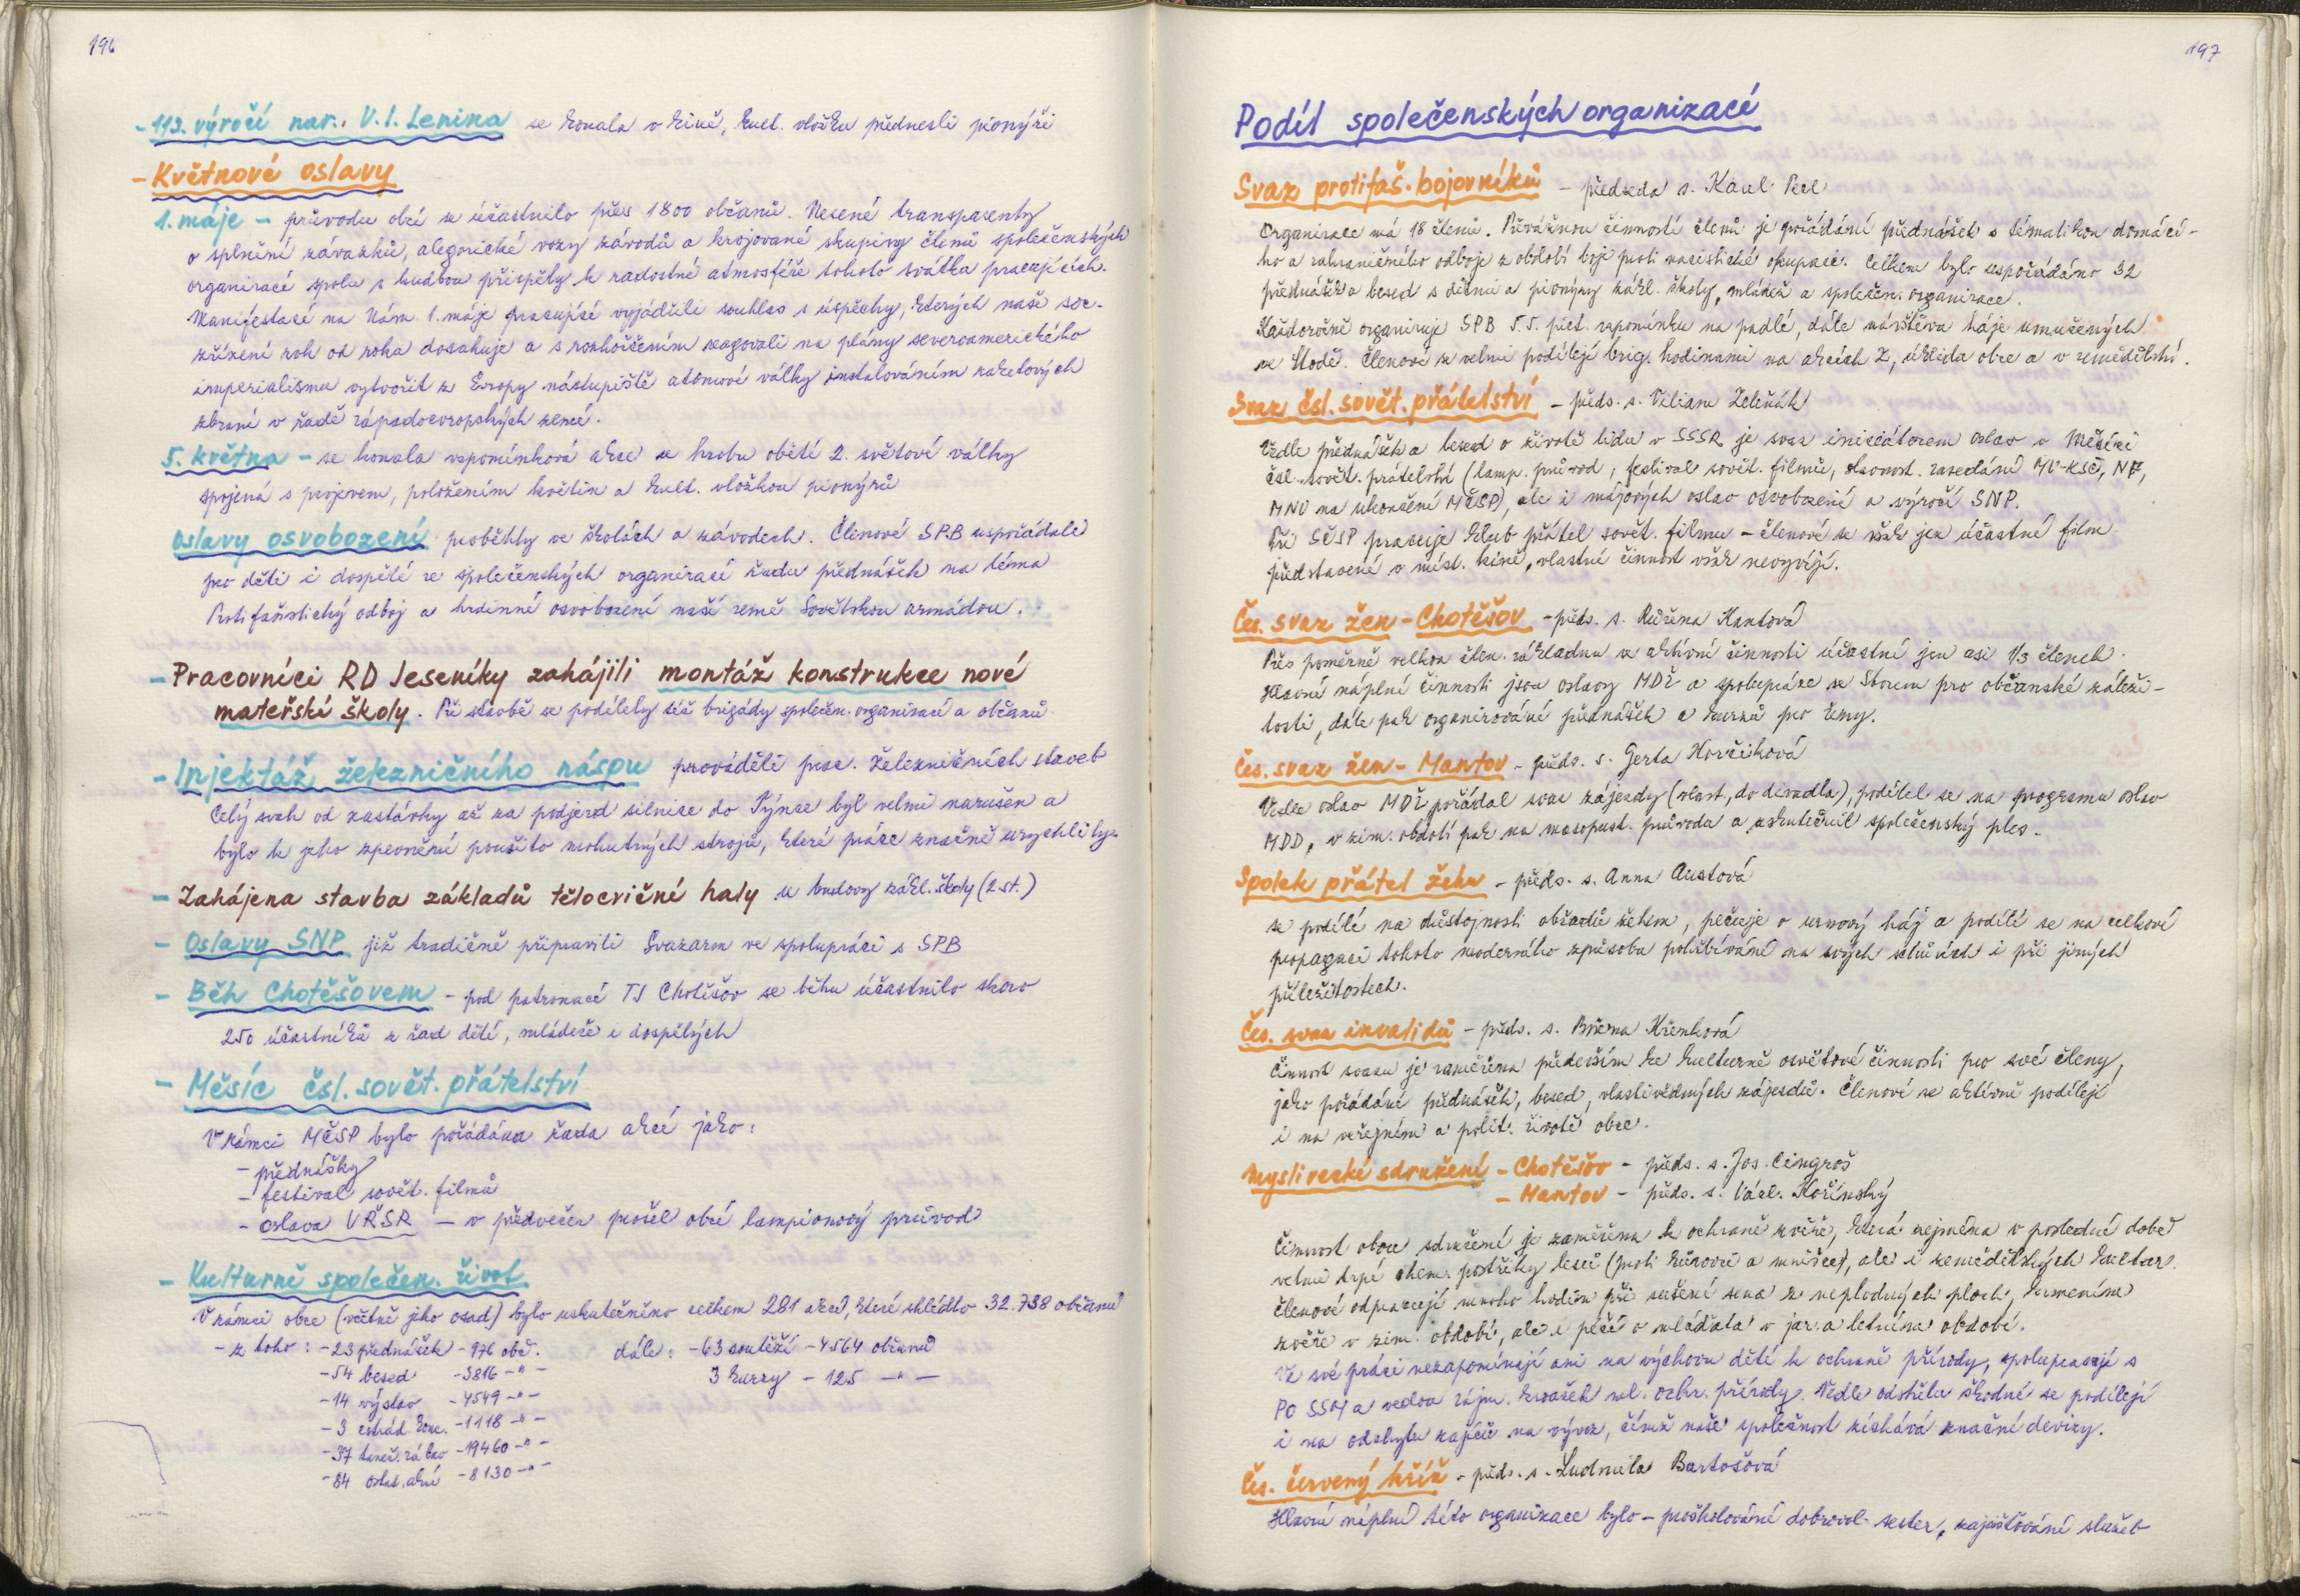 196
- 113. výročí nar. V. I. Lenina se konala v kině, kult. vložku přednesli pionýři
- Květnové oslavy
1. máje - průvodu obcí se účastnilo přes 1800 občanů. Nesené transparenty
o splnění závazků, alegorické vozy závodů a krojované skupiny členů společenských
organizací spolu s hudbou přispěly k radostné atmosféře tohoto svátku pracujících.
Manifestací na Nám. 1. máje pracující vyjádřili souhlas s úspěchy, kterých naše soc.
zřízení rok od roku dosahuje a s rozhořčením reagovali na plány severoamerického
imperialismu vytvořit z Evropy nástupiště atomové války instalováním raketových
zbraní v řadě západoevropských zemí.
5. května - se konala vzpomínková akce u hrobu obětí 2. světové války
spojená s projevem, položením květin a kult. vložkou pionýrů
Oslavy osvobození proběhly ve školách a závodech. Členové SPB uspořádali
pro děti i dospělé ze společenských organizací řadu přednášek na téma
Protifašistický odboj a hrdinné osvobození naší země Sovětskou armádou.
- Pracovníci RD Jeseníky zahájili montáž konstrukce nové
mateřské školy. Při stavbě se podílely též brigády společen. organizací a občanů
- Injektáž železničního náspu prováděli prac. železničních staveb
Celý svah od zastávky až za podjezd silnice do Týnce byl velmi narušen a
bylo k jeho zpevnění použito mohutných strojů, které práce značně urychlily.
- Zahájena stavba základů tělocvičné haly u budovy zákl. školy (2 st.)
- Oslavy SNP již tradičně připravili Svazarm ve spolupráci s SPB
- Běh Chotěšovem - pod patronací TJ Chotěšov se běhu účastnilo skoro
250 účastníků z řad dětí, mládeže i dospělých
- Měsíc čsl. sovět. přátelství
V rámci MČSP bylo pořádána řada akcí jako:
- přednášky
- festival sovět. filmů
- oslava VŘSR - v předvečer prošel obcí lampionový průvod
- Kulturně společen. život
V rámci obce (včetně jeho osad) bylo uskutečněno celkem 281 akcí, které shlédlo 32.738 občanů
- z toho: - 23 přednášek - 976 obč. dále: - 63 soutěží - 4564 občanů
- 54 besed - 3816 -"- 3 kurzy - 125 -"-
- 14 výstav - 4549 -"-
- 3 estrád. konc. - 1118 -"-
- 37 taneč. zábav - 19460 -"-
- 84 ostat. akcí - 8130 -"-
197
Podíl společenských organizací
Svaz protifaš. bojovníků - předseda s. Karel Perl
Organizace má 18 členů. Převážnou činností členů je pořádání přednášek s tématikou domácí-
ho a zahraničního odboje z období boje proti nacistické okupaci. Celkem bylo uspořádáno 32
přednášek a besed s dětmi a pionýry zákl. školy, mládeží a společen. organizace.
Každoročně organizuje SPB 5.5. piet. vzpomínku na padlé, dále návštěvu háje umučených
ve Stodě. Členové se velmi podílejí brig. hodinami na akcích Z, úklidu obce a v zemědělství.
Svaz čsl. sovět. přátelství - předs. s. Viliam Zeleňák
Vedle přednášek a besed o životě lidu v SSSR je svaz iniciátorem oslav v Měsíci
čsl. sovět. přátelství (lamp. průvod, festival sovět. filmů, slavnost. zasedání MV-KSČ, NF,
MNV na ukončení MČSP), ale i májových oslav osvobození a výročí SNP.
Při SČSP pracuje Klub přátel sovět. filmu - členové se však jen účastní film.
představení v míst. kině, vlastní činnost však nevyvíjí.
Čes. svaz žen - Chotěšov - předs. s. Růžena Kantová
Přes poměrně velkou člen. základnu se aktivní činnosti účastní jen asi 1/3 členek.
Hlavní náplní činnosti jsou oslavy MDŽ a spolupráce se Sborem pro občanské záleži-
tosti, dále pak organizování přednášek a kurzů pro ženy.
Čes. svaz žen - Mantov - předs. s. Gerta Horčiková
Vedle oslav MDŽ pořádal svaz zájezdy (vlast., do divadla), podílel se na programu oslav
MDD, v zim. období pak na masopust. průvodu a uskutečnil společenský ples.
Spolek přátel žehu - předs. s. Anna Austová
se podílí na důstojnosti obřadů žehem, pečuje o urnový háj a podílí se na celkové
propagaci tohoto moderního způsobu pohřbívání na svých schůzích i při jiných
příležitostech.
Čes. svaz invalidů - předs. s. Božena Křenková
Činnost svazu je zaměřena především ke kulturně osvětové činnosti pro své členy,
jako pořádání přednášek, besed, vlastivědných zájezdů. Členové se aktivně podílejí
i na veřejném a polit. životě obce.
Myslivecké sdružení - Chotěšov - předs. s. Jos. Cingroš
- Mantov - předs. s. Václ. Kořínský
Činnost obou sdružení je zaměřena k ochraně zvěře, která zejména v poslední době
velmi trpí chem. postřiky lesů (proti kůrovci a mnišce), ale i zemědělských kultur.
Členové odpracují mnoho hodin při sušení sena z neplodných ploch, krmením
zvěře v zim. období, ale i péčí o mláďata v jar. a letním období.
Ve své práci nezapomínají ani na výchovu dětí k ochraně přírody, spolupracují s
PO SSM a vedou zájm. kroužek ml. ochr. přírody. Vedle odstřelu škodné se podílejí
i na odchytu zajíců na vývoz, čímž naše společnost získává značné devizy.
Čes. červený kříž - předs. s. Ludmila Bartošová
Hlavní náplní této organizace bylo - proškolování dobrovol. sester, zajišťování služeb